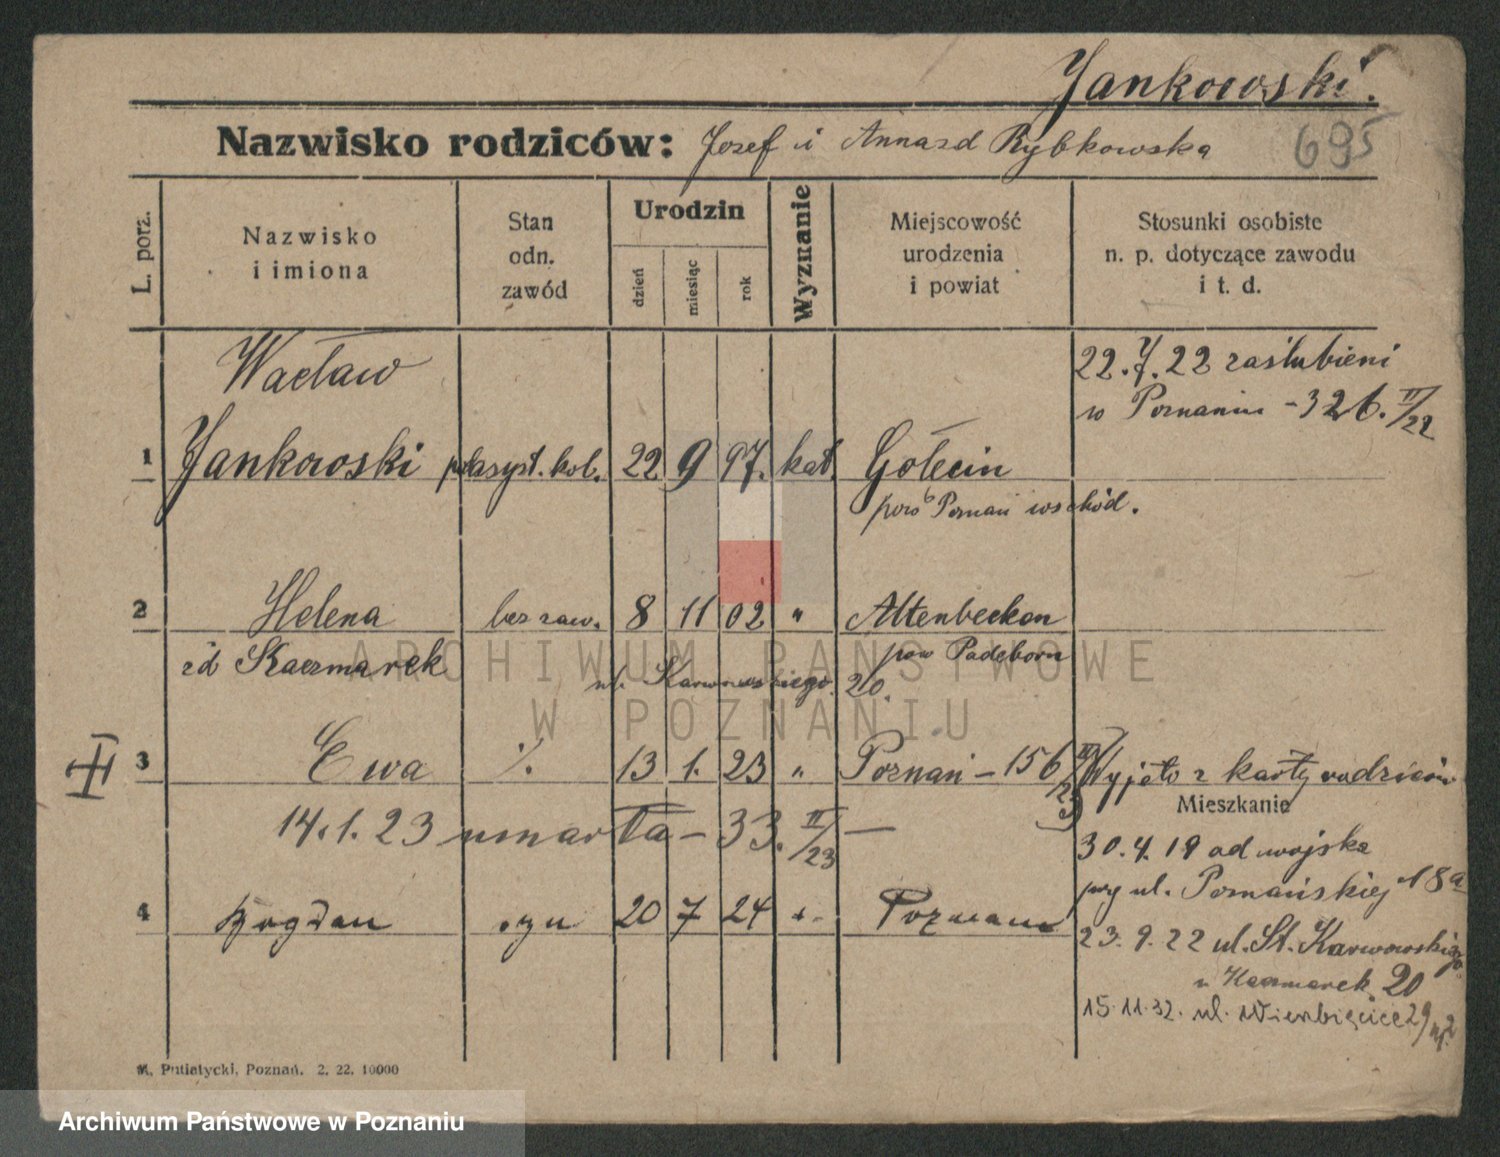 Jankowski.
Nazwisko rodziców: Josef i Anna zd Rybkowska
695
L. porz.
Nazwisko i imiona
Stan odn. zawód
Urodzin
dzień
miesiąc
rok
Wyznanie
Miejscowość urodzenia i powiat
Stosunki osobiste n. p. dotyczące zawodu i t. d.
Wacław
22.7.22 zaślubieni
w Poznaniu - 326. II/22
1 Jankowski asyst. kol. 22 9 97. kat. Gołecin
pow Poznań wschód.
2 Helena bez zaw. 8 11 02 " Altenbecken
zd Kaczmarek
pow Padeborn
ul. Karwowskiego 20.
3 Ewa ·/. 13 1. 23 " Poznań - 156 Wyjęto z karty rodziców
Mieszkanie
14.1.23 umarła - 33. II/23 —
30.4.19 od wojska
przy ul. Poznańskiej 18a
4 Bogdan syn 20 7 24 Poznań
23.9.22 ul. St. Karwowskiego
u Kaczmarek 20
15.11.32. ul. Wierzbięcice 29
M. Putiatycki, Poznań. 2. 22. 10000
ARCHIWUM PAŃSTWOWE
W POZNANIU
Archiwum Państwowe w Poznaniu